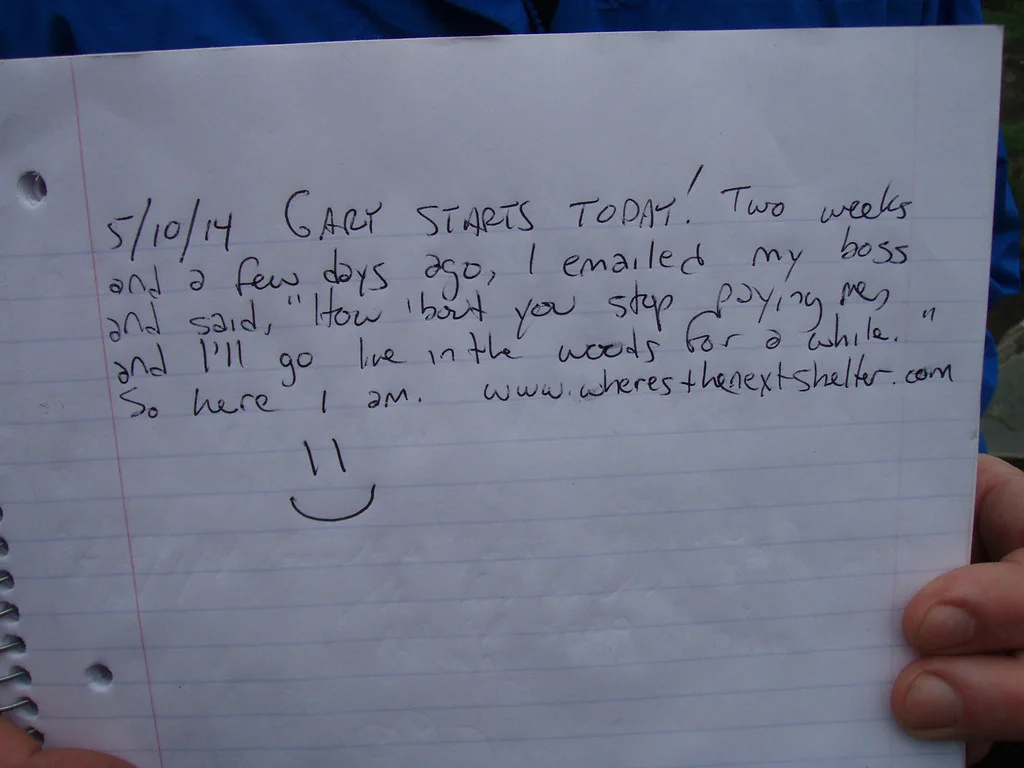 5/10/14 GARY STARTS TODAY! Two weeks
and a few days ago, I emailed my boss
and said, "How 'bout you stop paying me,
and I'll go live in the woods for a while."
So here I am. www.wheresthenextshelter.com